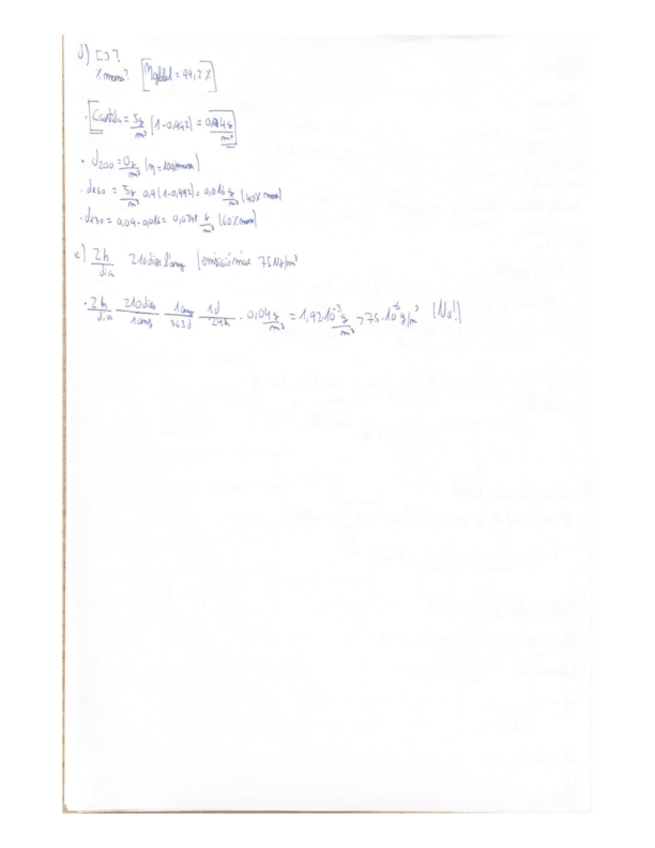 d) [ ]?
% massa? [ηglobal = 99,2%]
· [Csortida = 5g/m³ (1-0,992) = 0,04 g/m³]
· d200 = 0 g/m³ (η = 100%)
· d150 = 5g/m³ 0,4 (1-0,992) = 0,016 g/m³ (40% massa)
· d130 = 0,04 - 0,016 = 0,024 g/m³ (60% massa)
e) 2h/dia 210 dies l'any | emissió màx 75 µg/m³
· 2h/dia 210 dies/1any 1any/365d 1d/24h · 0,04 g/m³ = 1,92·10⁻³ g/m³ > 75·10⁻⁶ g/m³ (No!)